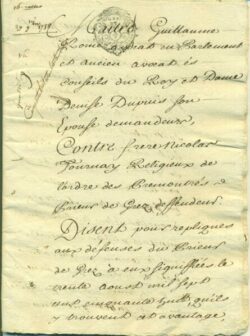 Maitre Guillaume
Rome avocat en Parlement
et ancien avocat és
Conseils du Roy et Dame
Denise Dupuis son
Epouse demandeurs
Contre frere Nicolas
Tournay Religieux de
lordre des Premontrés
Prieur de Grez deffendeur.
Disent pour repliques
aux défenses du Prieur
de Grez a eux signiffiées le
trente aoust mil sept
cent cinquante huit quils
y trouvent et avantage